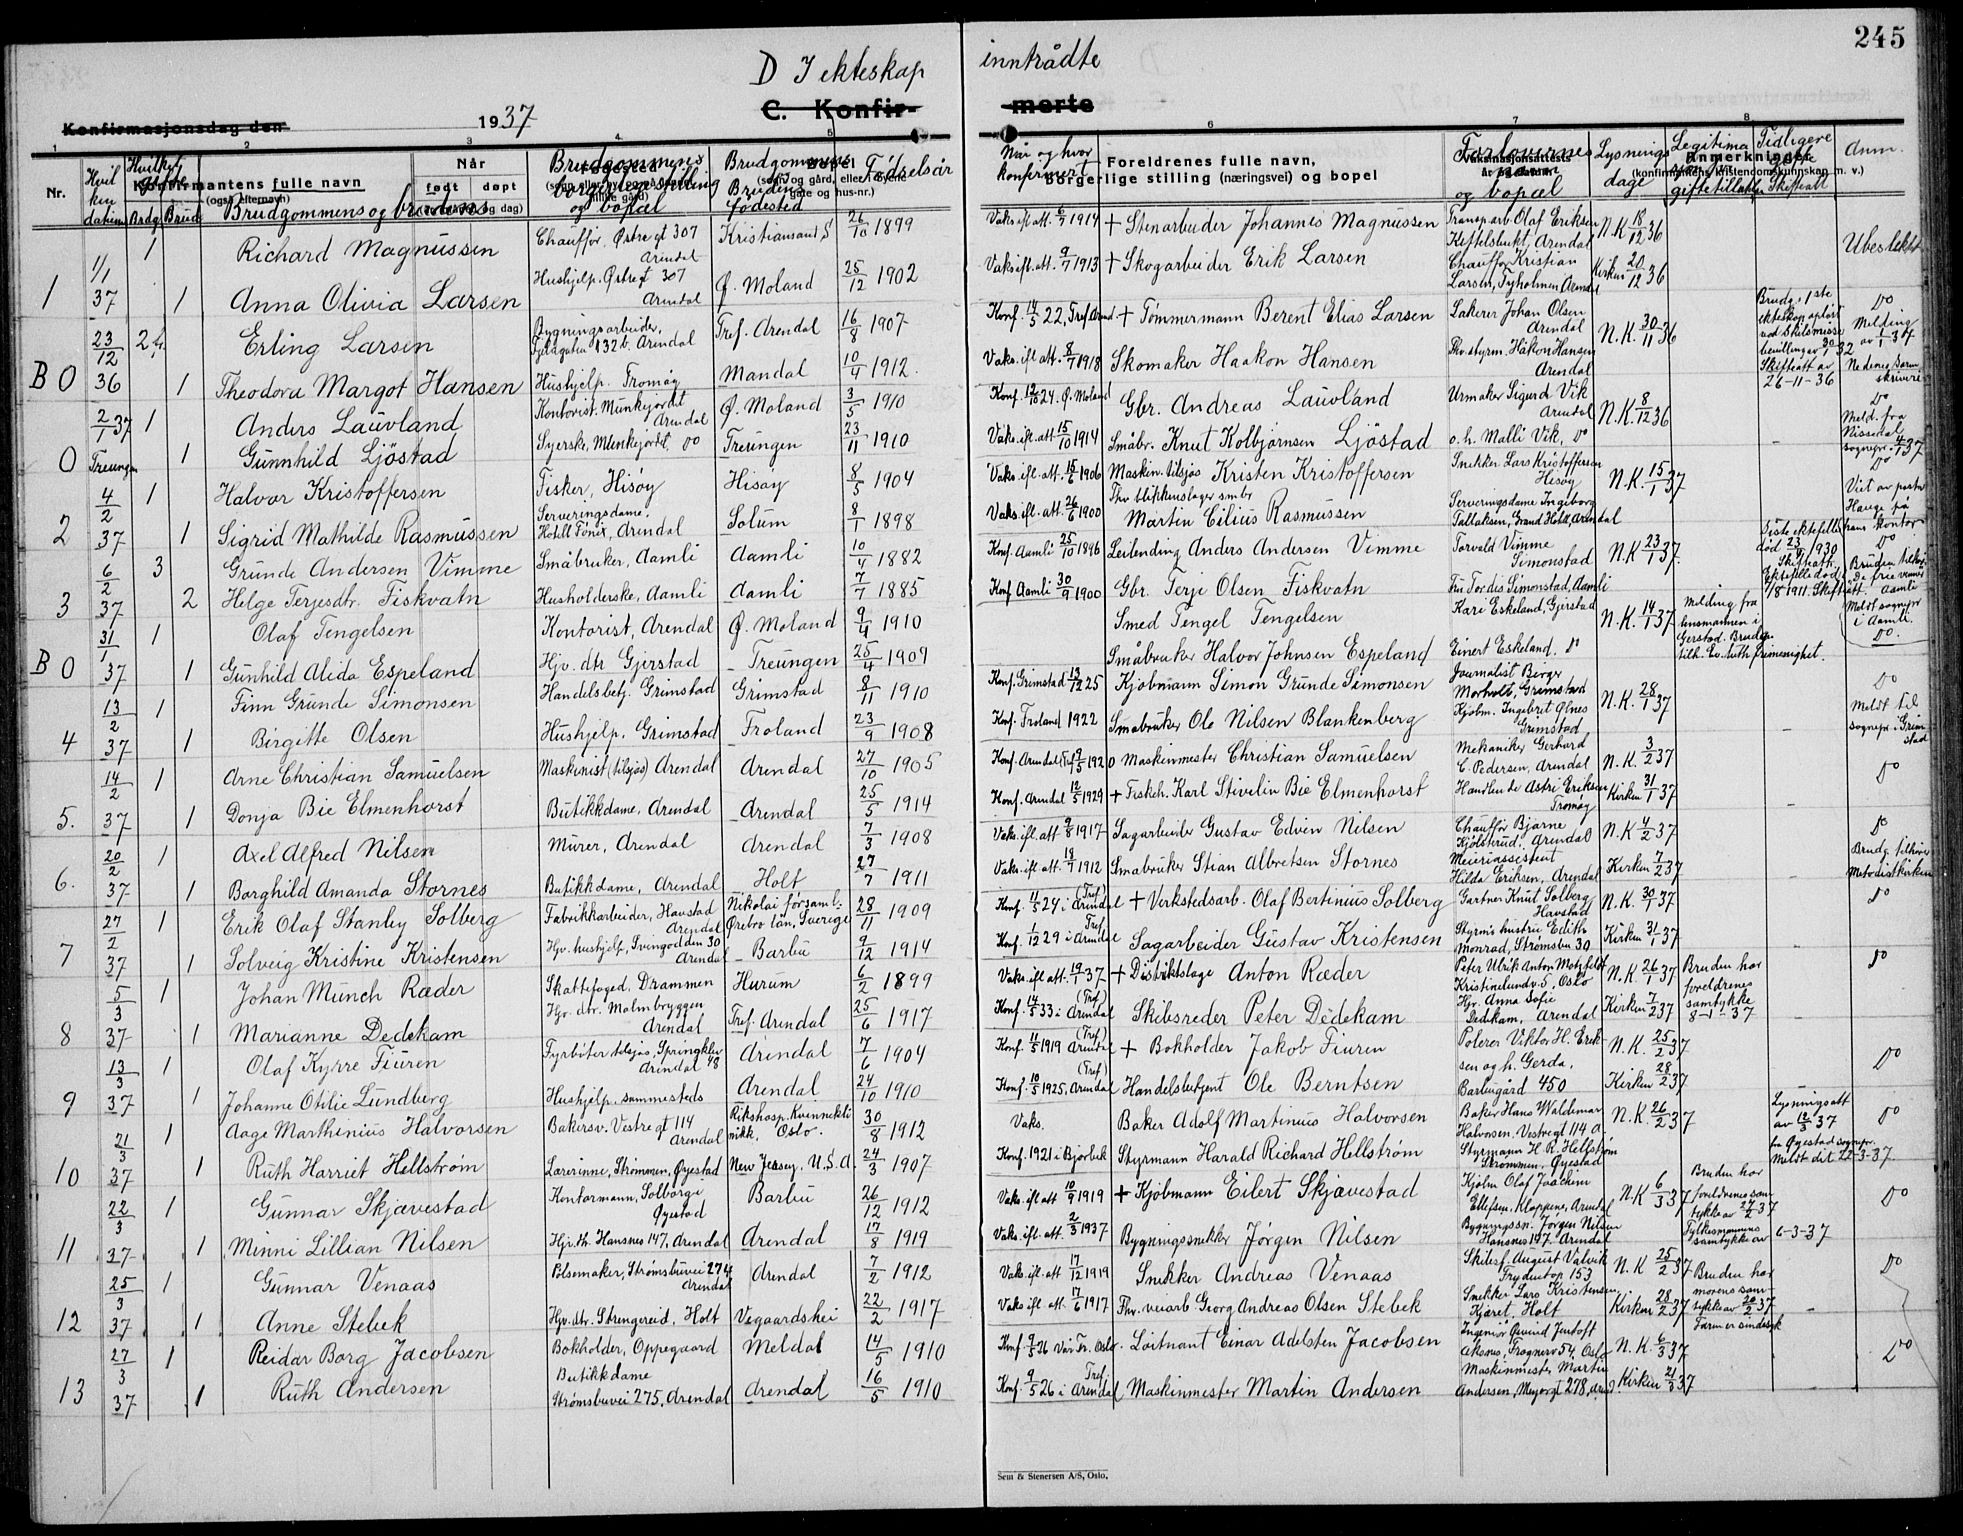 245
D I ekteskap inntrådte
C. Konfir- merte
Konfirmasjonsdag den 1937
1 2 3 4 5 6 7 8
Nr.
Hvilken datum
Hvilket gifte
Brdg. Brud
Konfirmantens fulle navn
(også etternavn)
Brudgommens og brudens
Når
født døpt
Fødested
Brudgommens borgerl. stilling og bopæl
Bopel
Brudgommens Brudens fødested
Fødselsår
Når og hvor konfirmert
Foreldrenes fulle navn,
borgerlige stilling (næringsvei) og bopel
Forlovernes navn og bopæl
Lysnings dage
Anmerkninger
(konfirmantens kristendomskunnskap m. v.)
Tidligere gifte Skifteatt
Anm.
1 1/1 37 1 Richard Magnussen Chauffør, Østregt 307 Arendal Kristiansand S 26/10 1899 Vaks. ifl. att. 6/7 1914 + Stenarbeider Johannes Magnussen Transp.arb. Olaf Eriksen Kittelsbukt, Arendal N.K. 18/12 36 Ubeslektet
1 Anna Olivia Larsen Hushjelp. Østregt 307 Arendal Ø. Moland 25/12 1902 Vaks. ifl. att. 9/7 1913 + Skogarbeider Erik Larsen Chauffør Kristian Larsen, Tyholmen Arendal Kirken 20/12 36
B 0 23/12 36 2 Erling Larsen Bygningsarbeider, Arendal Tref. Arendal 16/8 1907 Konf. 14/5 22, Tref. Arend. + Tømmermann Berent Elias Larsen Lakerer Johan Olsen Arendal N.K. 30/11 36 Brudg. 1ste ekteskap opløst ved Skilsmisse bevilling av 30/1 32 Do Melding av 1/1 37
1 Theodora Margot Hansen Hushjelp. Tromøy Mandal 10/4 1912. Vaks. ifl. att. 8/7 1918 Skomaker Haakon Hansen Thv. styrm. Håkon Hansen Arendal Skifteatt av 26-11-36 Nedenes Sorenskriveri
0 2/1 37 Treungen 1 Anders Lauvland Kontorist. Munkejordet Arendal Ø. Moland 3/5 1910 Konf. 12/10 24. Ø. Moland Gbr. Andreas Lauvland Urmaker Sigurd Vik Arendal N.K. 8/12 36 Do Meld. fra Nissedal sognepr. 4/1 37
1 Gunnhild Ljøstad Syerske, Munkejordet, Do Treungen 23/11 1910 Vaks. ifl. att. 15/10 1914 Småbr. Knut Kolbjørnsen Ljøstad o. h. Malli Vik, Do
2 4/2 37 1 Halvor Kristoffersen Fisker, Hisøy Hisøy 8/5 1904 Vaks. ifl. att. 15/6 1906 Maskin. tilsjøs Kristen Kristoffersen Snekker Lars Kristoffersen Hisøy N.K. 15/1 37 Do Viet av pastor Hauge på hans kontor
1 Sigrid Mathilde Rasmussen Serveringsdame. Hotell Fönix, Arendal Solum 8/1 1898 Vaks. ifl. att. 26/6 1900 Thv blikkenslager smbr Martin Cilius Rasmussen Serveringsdame Ingeborg Tallaksen, Grand Hotel, Arendal
3 6/2 37 3 Grunde Andersen Vimme Småbruker, Aamli Aamli 10/4 1882 Konf. Aamli 25/10 1896 Leilending Anders Andersen Vimme Torvald Vimme Simonstad N.K. 23/1 37. Siste ektefelle død 23/9 1930 Skifteatt. Do
2 Helge Terjesdtr. Fiskvatn Husholderske, Aamli Aamli 7/7 1885 Konf. Aamli 30/9 1900 Gbr. Terje Olsen Fiskvatn Fru Tordis Simonstad, Aamli Ektefelle død 7/8 1911. Skifteatt. Meldt sognepr i Aamli.
B 0 31/1 37 1 Olaf Tengelsen Kontorist, Arendal Ø. Moland 9/4 1910 Smed Tengel Tengelsen Kari Eskeland, Gjerstad N.K. 14/1 37 Melding fra lensmannen i Gjerstad. Bruden tilh. Ev. luth frimenighet. Do.
1 Gunhild Alida Espeland Hjv. dtr Gjerstad Treungen 25/4 1909 Småbruker Halvor Johnsen Espeland Einert Eskeland. Do
4 13/2 37 1 Finn Grunde Simonsen Handelsbetj. Grimstad Grimstad 8/11 1910 Konf. Grimstad 13/12 25 Kjøbmann Simon Grunde Simonsen Journalist Birger Morholt, Grimstad N.K. 28/1 37 Do Meldt til sognepr. i Grimstad
1 Birgitte Olsen Hushjelp. Grimstad Froland 23/9 1908 Konf. Froland 1922 Småbruker Ole Nilsen Blankenberg Kjøbm. Ingebret Ølnes Grimstad
5. 14/2 37 1 Arne Christian Samuelsen Maskinist (tilsjøs) Arendal Arendal 27/10 1905 Konf. Arendal 9/5 1920 Maskinmester Christian Samuelsen Mekaniker Gerhard C. Pedersen, Arendal N.K. 3/2 37 Do
1 Donja Bie Elmenhorst Butikkdame, Arendal Arendal 25/5 1914 Konf. Arendal 12/5 1929 + Fiskeh. Karl Stivelin Bie Elmenhorst Astri Eriksen Tromøy Kirken 31/1 37
6. 20/2 37 1 Axel Alfred Nilsen Murer, Arendal Arendal 7/3 1908 Vaks. ifl. att 9/8 1917 Sagarbeider Gustav Edvin Nilsen Chauffør Bjarne Kjølstrud. Arendal N.K 4/2 37 Do Brudg tilhører Metodistkirken
1 Borghild Amanda Stornes Butikkdame, Arendal Holt 27/7 1911 Vaks. ifl. att. 19/7 1912 Småbruker Stian Albretsen Stornes Meieriassistent Hilda Eriksen, Arendal Kirken 7/2 37
7 27/2 37 1 Erik Olaf Stanley Solberg Fabrikkarbeider, Havstad Arendal Nikolai forsaml. Örebro län, Sverige 28/11 1909 Konf. 11/5 24 i Arendal (Tref) + Verkstedsarb. Olaf Bertinius Solberg Gartner Knut Solberg Havstad N.K. 30/1 37 Do
1 Solveig Kristine Kristensen Hjv. hushjelp, Svingodden 30 Arendal Barbu 9/12 1914 Konf. 1/12 29 i Arendal Tref Sagarbeider Gustav Kristensen Styrm's hustru Edith Monrad, Strømsbu 30 Kirken 31/1 37
8 5/3 37 1 Johan Munch Ræder Skattefoged, Drammen Hurum 6/2 1899 Vaks. ifl att 19/1 37 + Distriktslæge Anton Ræder Peter Ulrik Anton Motzfeldt Kristinelundv. 5, Oslo N.K. 26/1 37 Bruden har foreldrenes samtykke 8-1-37 Do
1 Marianne Dedekam Hjv. dtr. Malmbryggen Arendal Tref. Arendal 25/6 1917 Konf. 14/5 33 i Arendal (Tref) Skibsreder Peter Dedekam Hjv. Anna Sofie Dedekam, Arendal Kirken 7/2 37
9 13/3 37 1 Olaf Kyrre Fiuren Fyrbøter tilsjøs, Springklev Arendal 48 Arendal 7/6 1904 Konf. 11/5 1919 Arendal (Tref) + Bokholder Jakob Fiuren Polerer Viktor H. Eriksen og h. Gerda, N.K. 25/2 37 Do
1 Johanne Otilie Lundberg Hushjelp. sammesteds Arendal 24/10 1910 Konf. 10/5 1925, Arendal (Tref) Handelsbetjent Ole Berntsen Barbugård 450 Kirken 28/2 37
10 21/3 37 1 Aage Marthinius Halvorsen Bakersv. Vestregt 114 Arendal Rikshosp. Kvinneklinikk, Oslo. 30/8 1912 Vaks. Baker Adolf Martinius Halvorsen Baker Hans Waldemar Halvorsen. Vestregt 114 a N.K. 26/2 37 Lysningsatt av 12/3 37 fra Øyestad sognepr. Do
1 Ruth Harriet Hellstrøm Lærerinne, Strømmen, Øyestad New Jersey, U.S.A. 24/3 1907 Konf. 1921 i Bjorbek Styrmann Harald Richard Hellstrøm Styrmann H. R. Hellstrøm Strømmen, Øyestad Meldt dit 22-3-37
11 22/3 37 1 Gunnar Skjævestad Kontormann, Solborg Øyestad Barbu 26/12 1912 Vaks. ifl att 10/9 1919 + Kjøbmann Eilert Skjævestad Kjøbm Olaf Joachim Ellefsen, Kloppene, Arendal N.K 6/3 37 Bruden har foreldrenes samtykke av 27/2 37 Do
1 Minni Lillian Nilsen Hjv. th. Hansnes 147, Arendal Arendal 17/8 1919 Vaks. ifl. att. 2/3 1937 Bygningssnekker Jørgen Nilsen Bygningssn. Jørgen Nilsen Hansnes 147, Arendal Fylkesmannens samtykke av 6-3-37
12 25/3 37 1 Gunnar Venaas Pølsemaker, Strømsbuvei 274 Arendal Arendal 7/2 1912 Vaks. ifl. att 17/12 1919 Snekker Andreas Venaas Skibsf. August Valvik 153 N.K 25/2 37 Bruden har morens samtykke av 20/2 37. Farm er sindssyk Do
1 Anne Stebek Hjv. dtr. Strengereid, Holt Vegaardshei 22/2 1917 Vaks ifl. att. 17/6 1917 Thv. veiarb Georg Andreas Olsen Stebek Snekker Lars Kristensen Kjæret, Holt Kirken 28/2 37
13 27/3 37 1 Reidar Borg Jacobsen Bokholder, Oppegaard Meldal 14/5 1910 Konf. 9/5 26 Vår Fr. Oslo. Løitnant Einar Adelsten Jacobsen Ingeniør Øivind Aksnes, Frognerv 54, Oslo N.K. 6/3 37 Do
1 Ruth Andersen Butikkdame Strømsbuvei 275, Arendal Arendal 16/5 1910 Konf. 9/5 26 i Arendal Tref Maskinmester Martin Andersen Maskinmester Martin Andersen, 278, Arend. Kirken 21/3 37
Sem & Stenersen A/S, Oslo.